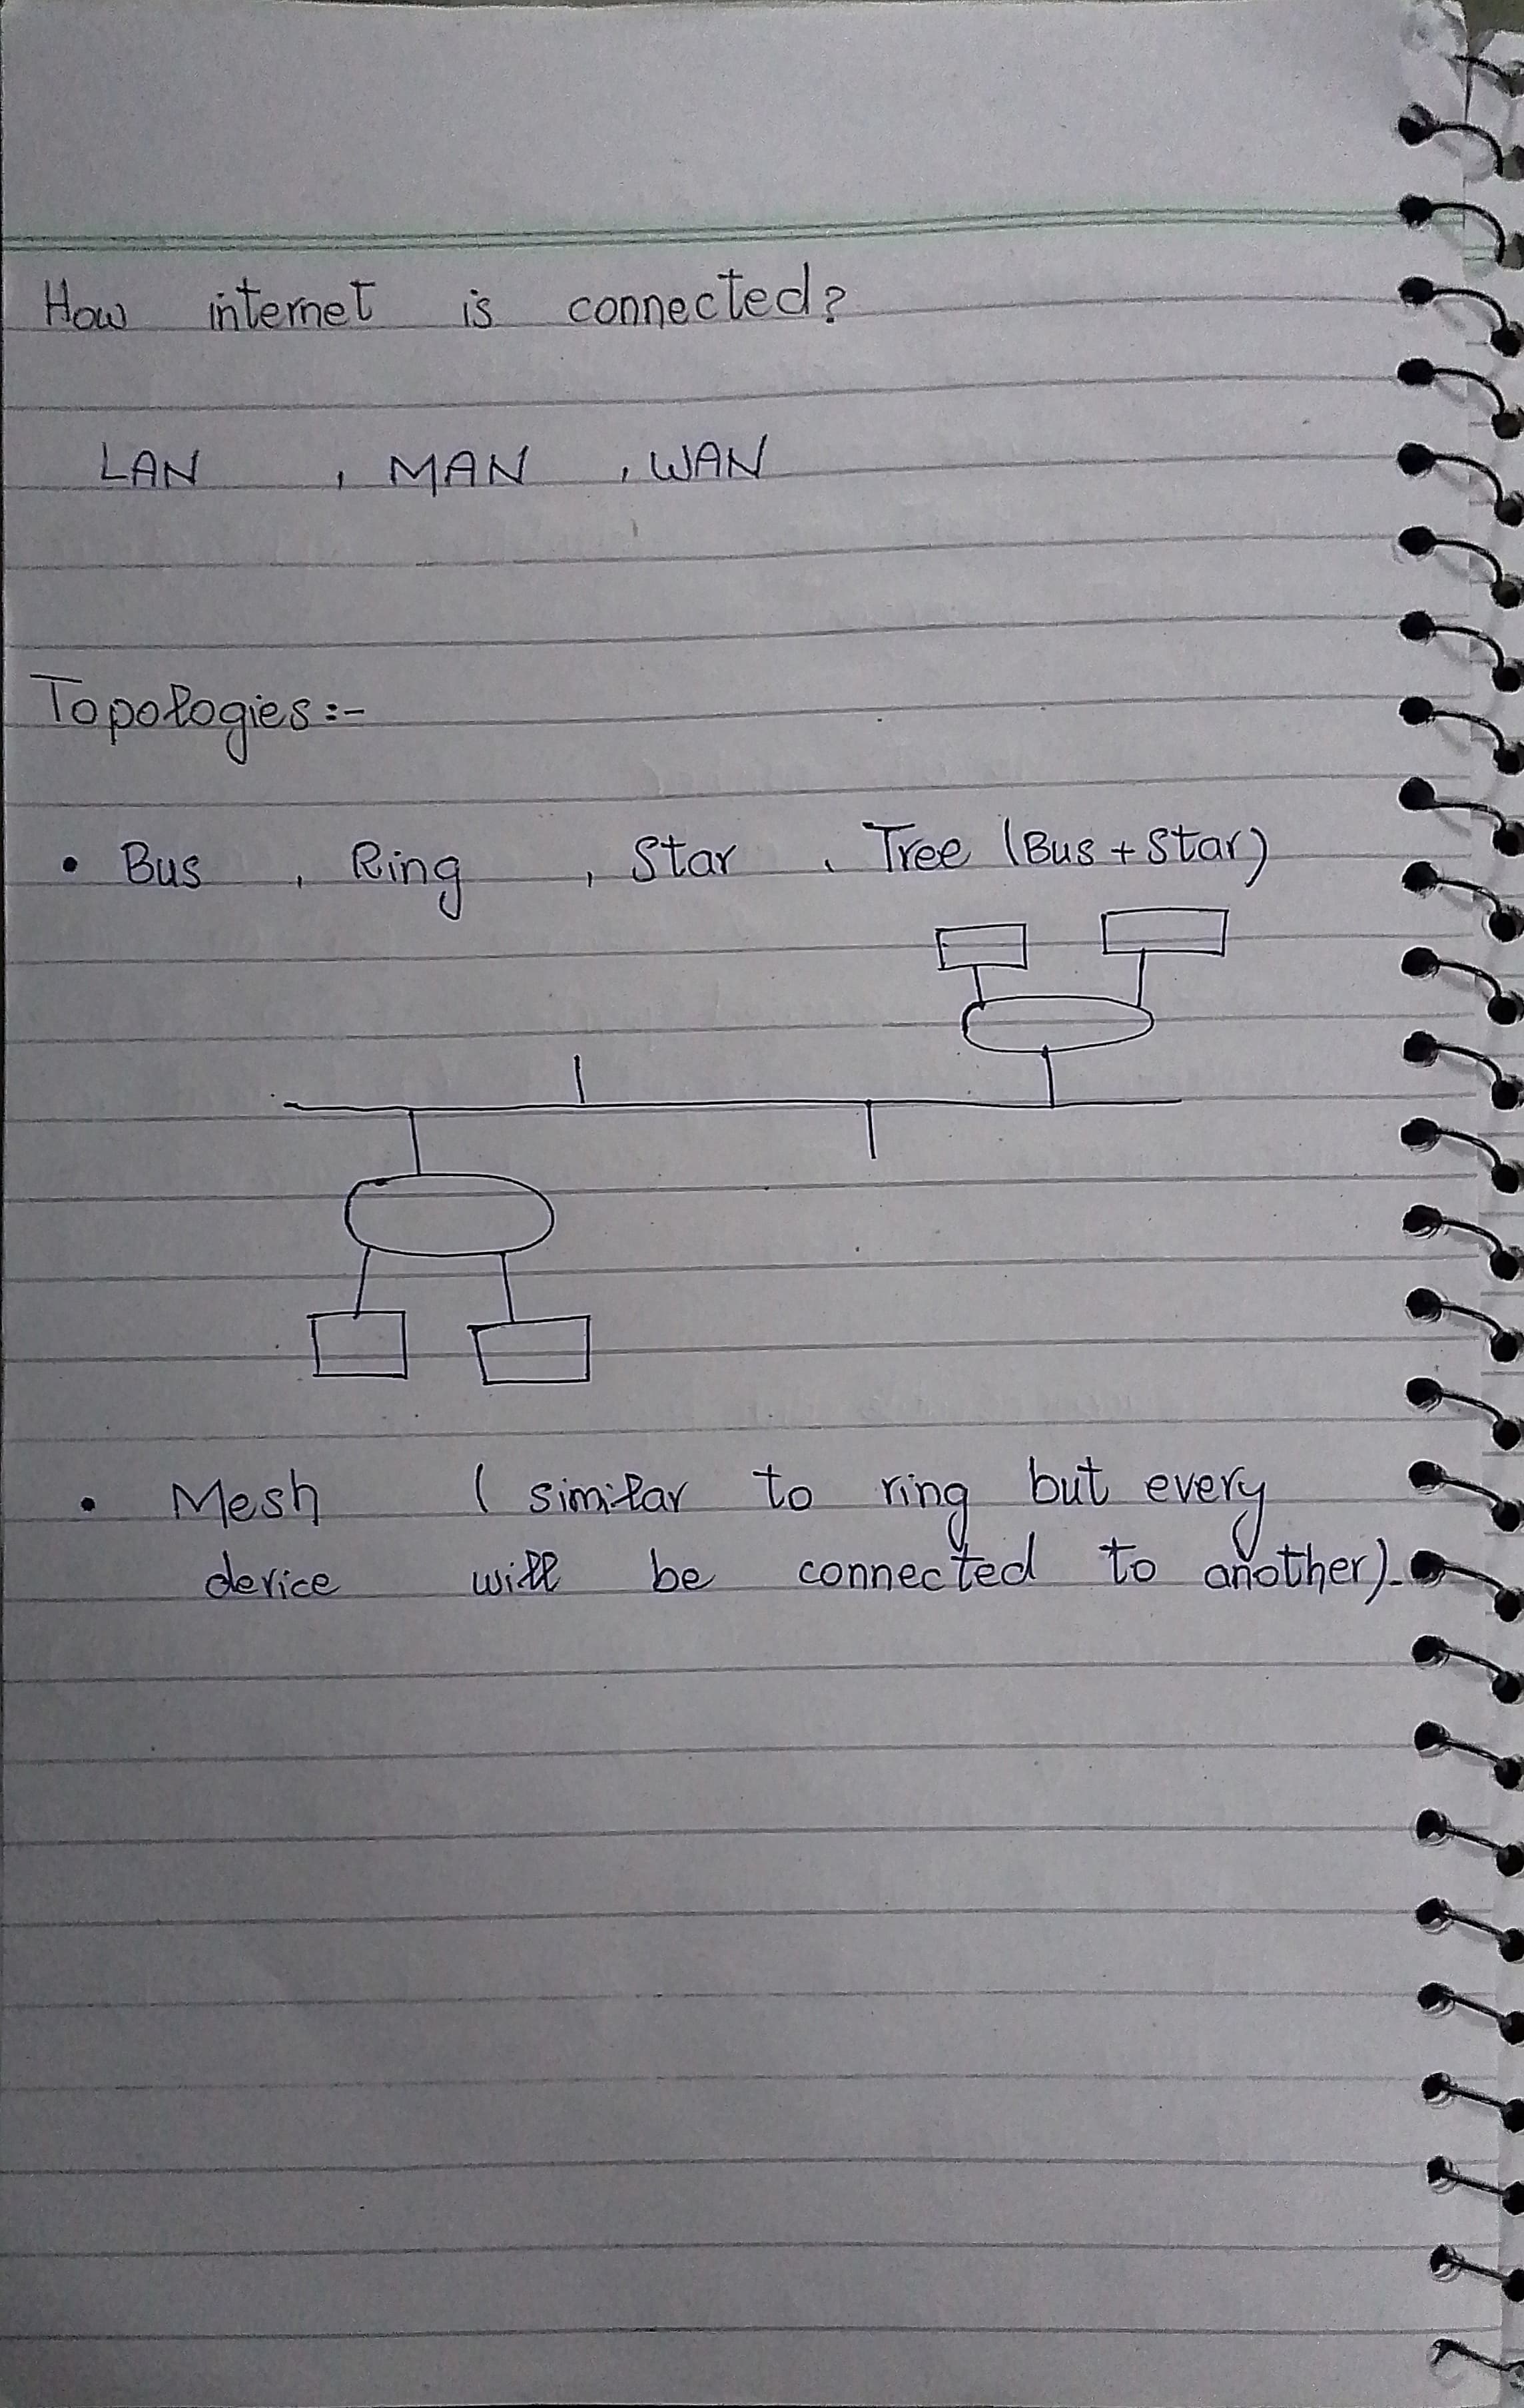 How internet is connected?
LAN , MAN , WAN
Topologies :-
• Bus , Ring , Star , Tree (Bus + Star)
• Mesh ( similar to ring but every
device will be connected to another).